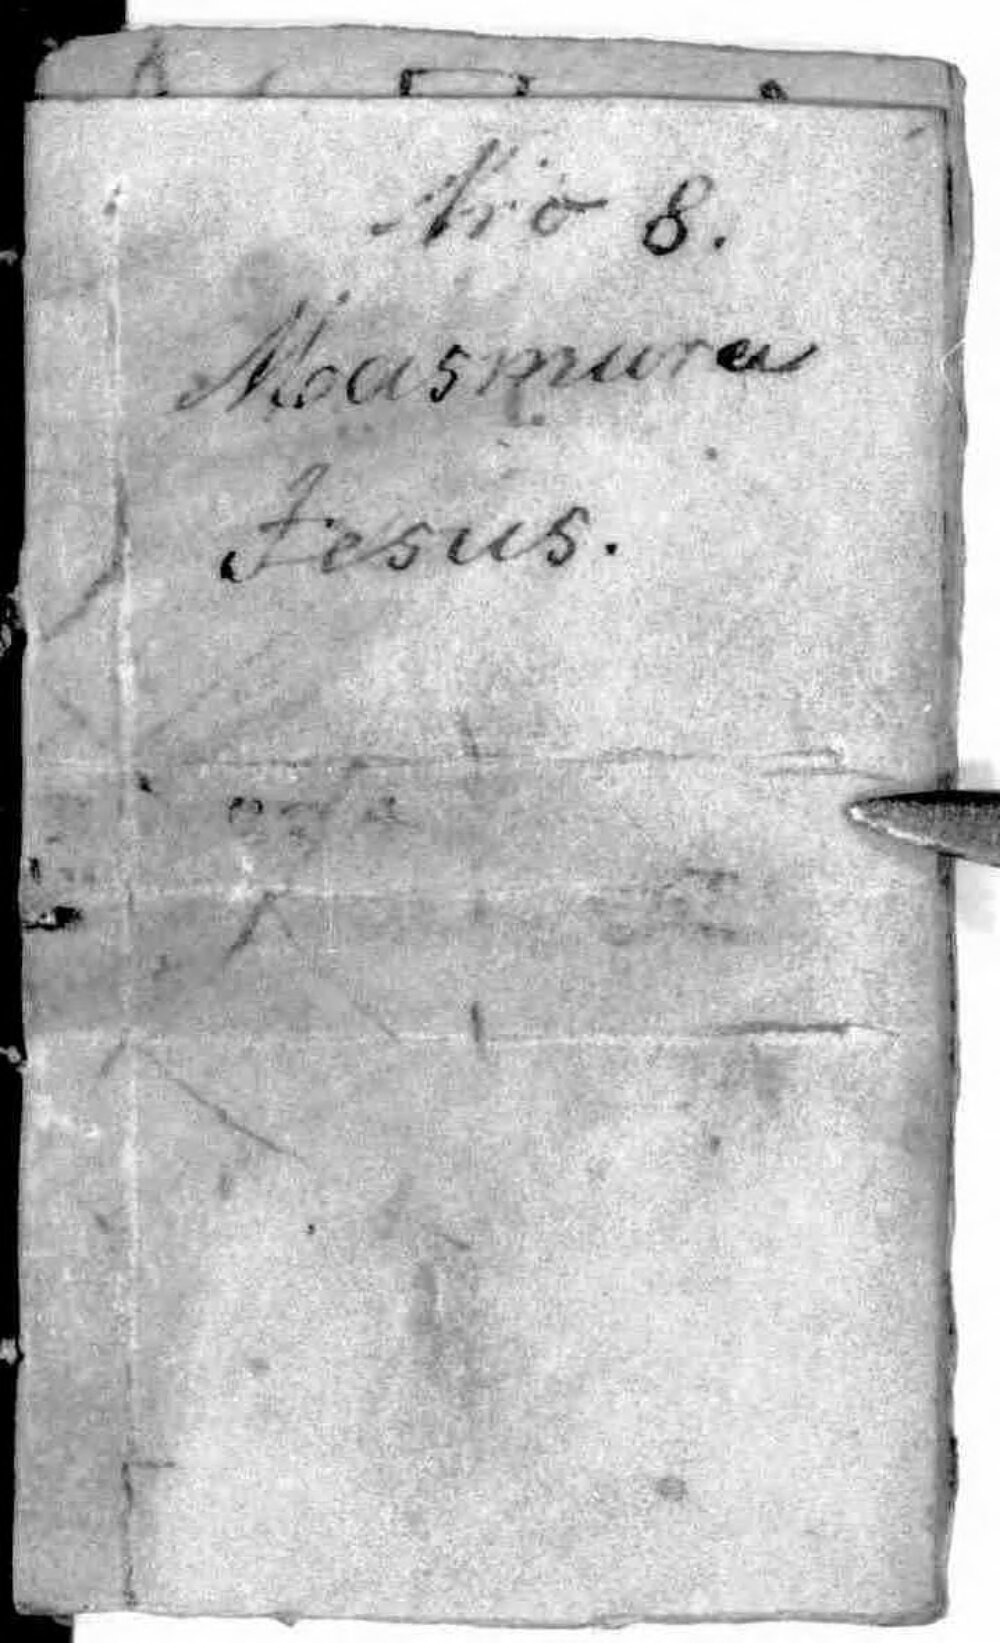 Nro 8.
Masmura
Jesus.